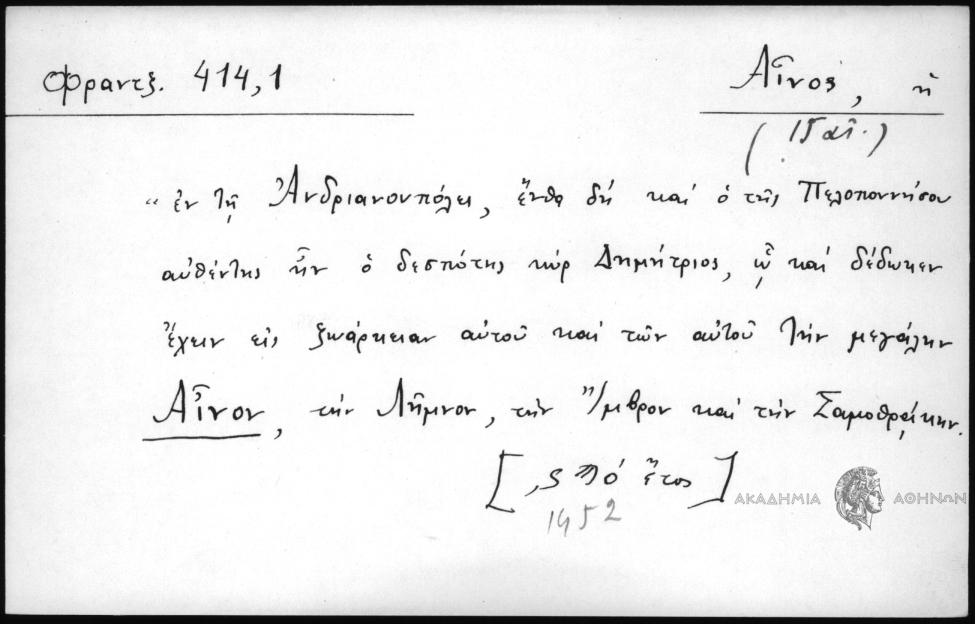 Φραντζ. 414,1
Αἶνος, ἡ
(15 αἰ.)
“ἐν τῇ Ἀνδριανουπόλει, ἔνθα δή καί ὁ τῆς Πελοποννήσου
αὐθέντης ἦν ὁ δεσπότης κύρ Δημήτριος, ᾧ καί δέδωκεν
ἔχειν εἰς ζωάρκειαν αὐτοῦ καί τῶν αὐτοῦ τήν μεγάλην
Αἶνον, τήν Λῆμνον, τήν Ἴμβρον καί τήν Σαμοθρᾴκην.
ἔτος]
1452
ΑΚΑΔΗΜΙΑ ΑΘΗΝΩΝ